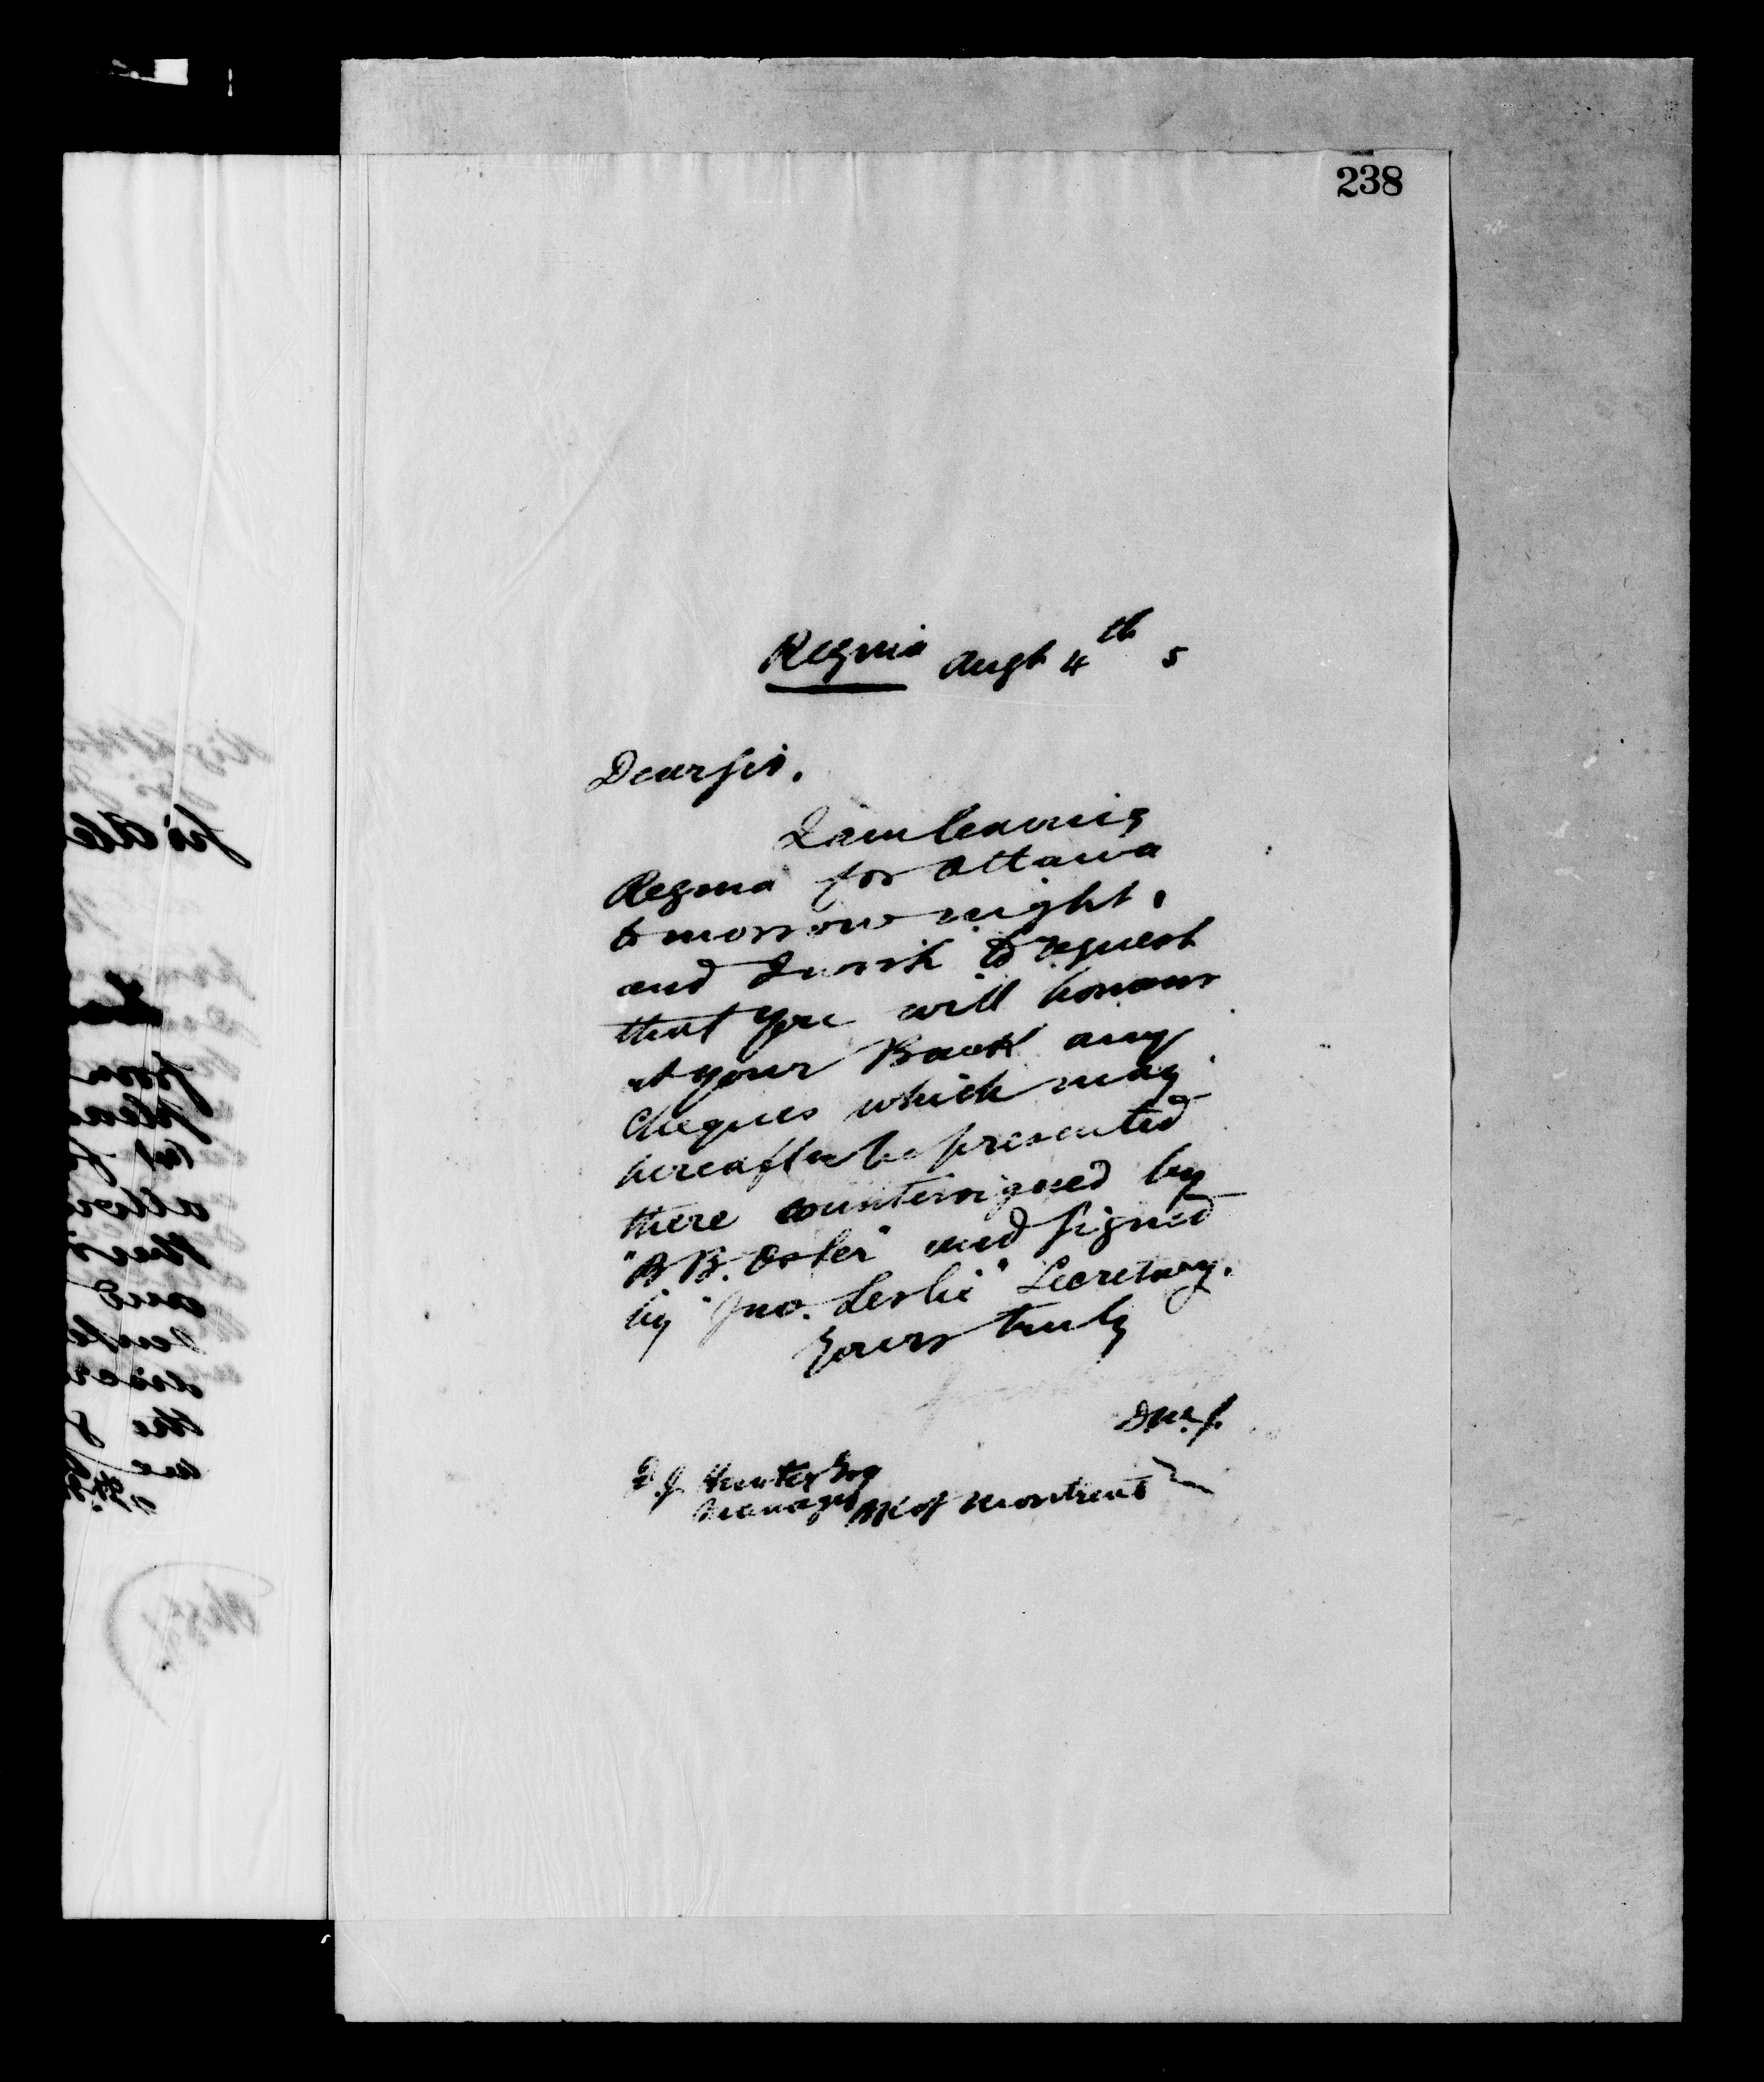 238
Regina Augt 4th 5
Dear Sir.
I am leaving
Regina for Ottawa
tomorrow night,
and I wish to request
that you will honour
at your Bank any
Cheques which may
hereafter be presented
there countersigned by
"B B. Osler" and signed
by "Jno. Leslie" Secretary.
Yours truly
J. Hunter Esq
Manager Bk of Montreal